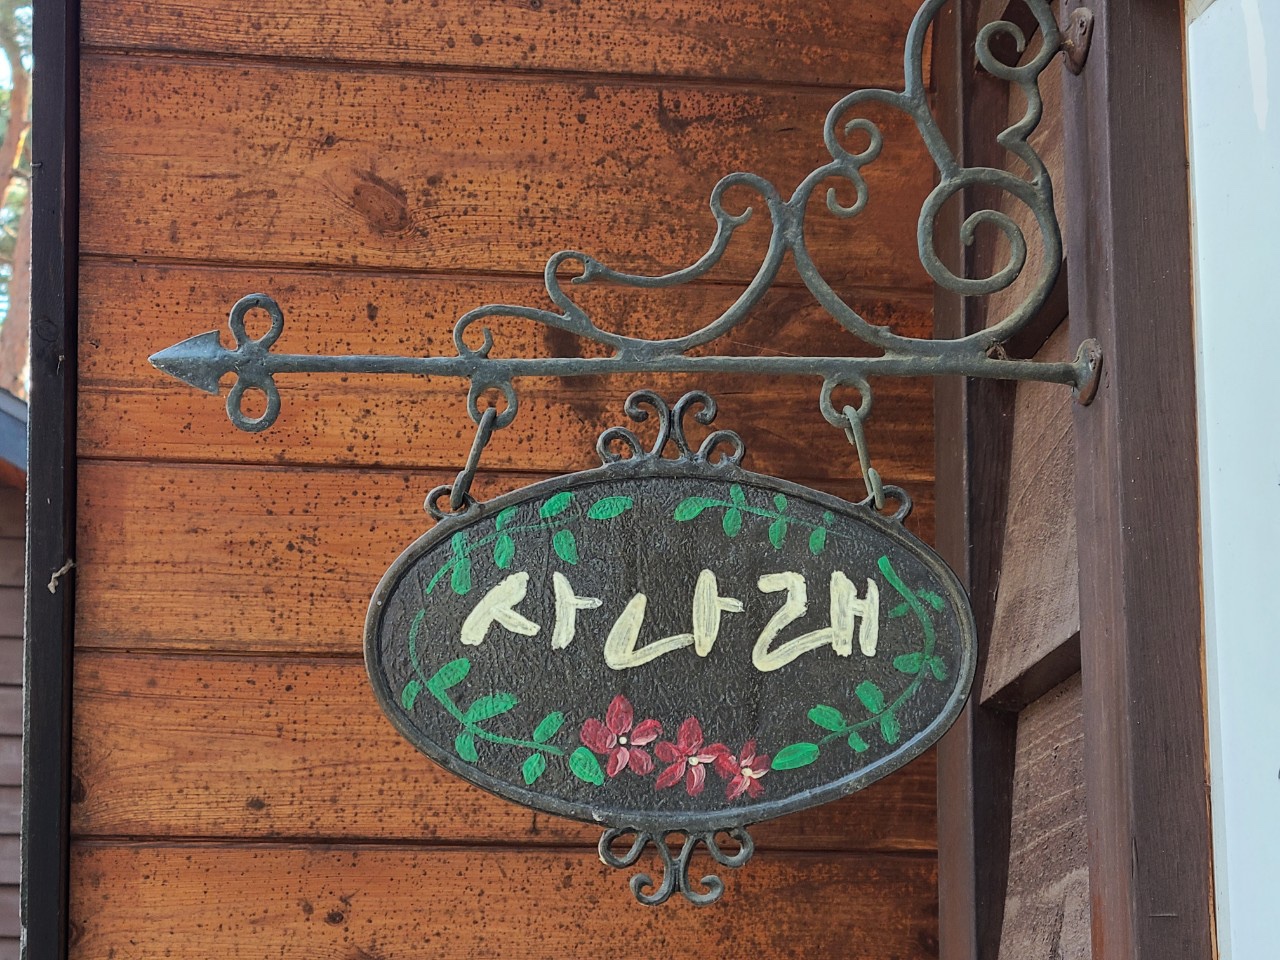 사나래